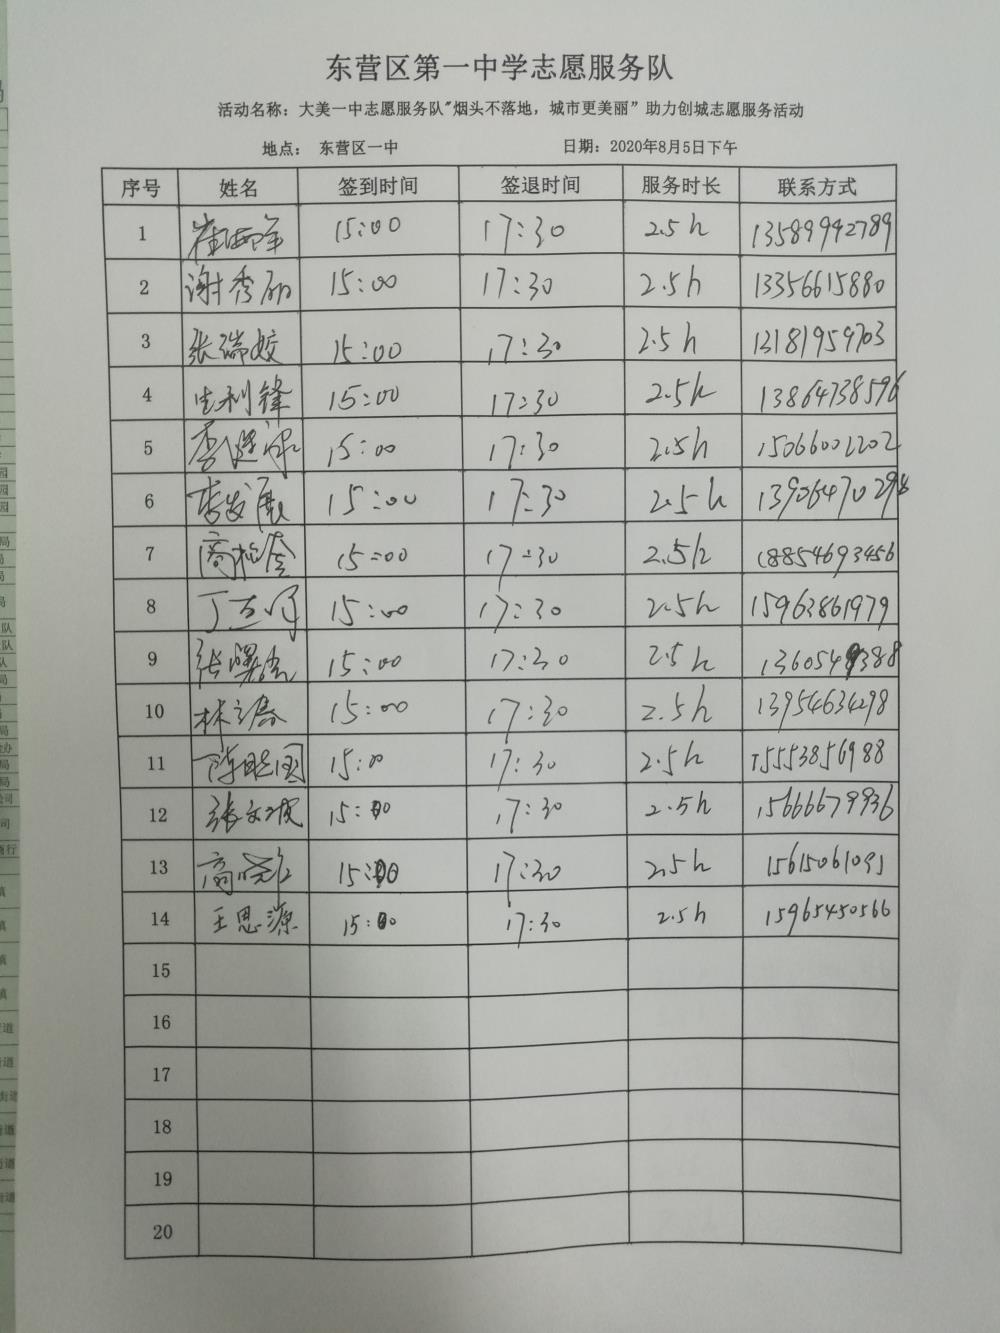 东营区第一中学志愿服务队
活动名称：大美一中志愿服务队"烟头不落地，城市更美丽”助力创城志愿服务活动
地点： 东营区一中 日期：2020年8月5日下午
序号 姓名 签到时间 签退时间 服务时长 联系方式
1 15:00 17:30 2.5h 13589942789
2 谢秀丽 15:00 17:30 2.5h 13356615880
3 张瑞姣 15:00 17:30 2.5h 13181959703
4 生利锋 15:00 17:30 2.5h 13864738596
5 李建 15:00 17:30 2.5h 15066001202
6 李发展 15:00 17:30 2.5h
7 商 15:00 17:30 2.5h 18854693456
8 丁 15:00 17:30 2.5h 15963861979
9 张 15:00 17:30 2.5h
10 林 15:00 17:30 2.5h 13954634298
11 陈 国 15:00 17:30 2.5h 15553856988
12 张文 15:00 17:30 2.5h 15666679936
13 高 15:00 17:30 2.5h 15615061091
14 王思源 15:00 17:30 2.5h 15965450566
15
16
17
18
19
20